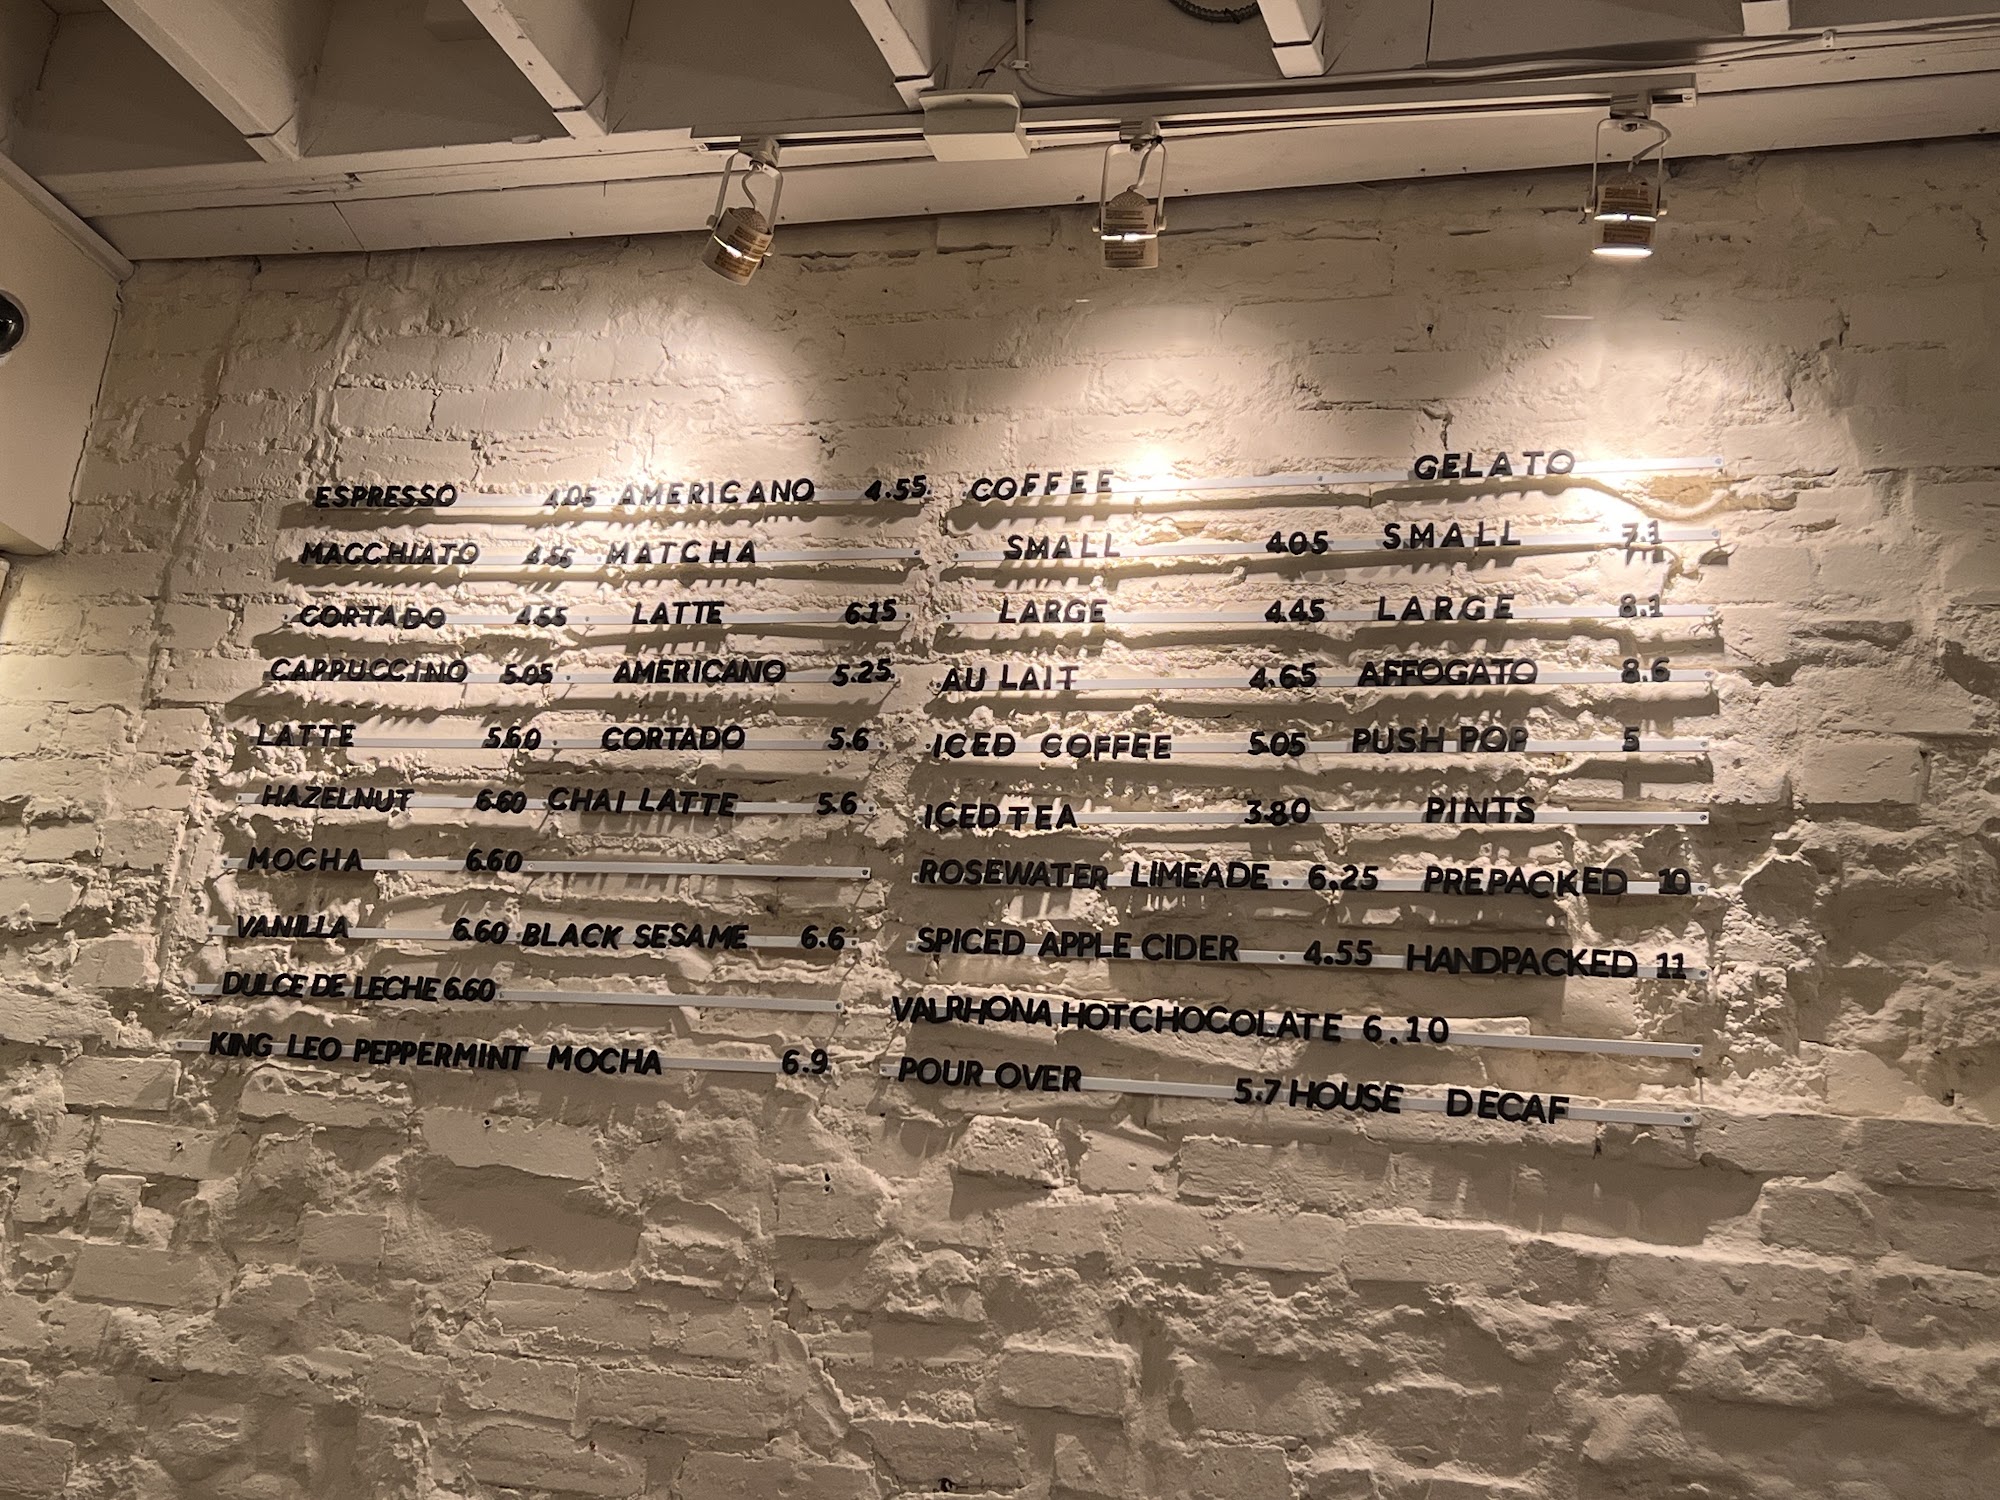 ESPRESSO 4.05 AMERICANO 4.55
MACCHIATO 4.55 MATCHA
CORTADO 4.55 LATTE 6.15
CAPPUCCINO 5.05 AMERICANO 5.25
LATTE 5.60 CORTADO 5.6
HAZELNUT 6.60 CHAI LATTE 5.6
MOCHA 6.60
VANILLA 6.60 BLACK SESAME 6.6
DULCE DE LECHE 6.60
KING LEO PEPPERMINT MOCHA 6.9
COFFEE GELATO
SMALL 4.05 SMALL 7.1
LARGE 4.45 LARGE 8.1
AU LAIT 4.65 AFFOGATO 8.6
ICED COFFEE 5.05 PUSH POP 5
ICED TEA 3.80 PINTS
ROSEWATER LIMEADE 6.25 PREPACKED 10
SPICED APPLE CIDER 4.55 HANDPACKED 11
VALRHONA HOT CHOCOLATE 6.10
POUR OVER 5.7 HOUSE DECAF